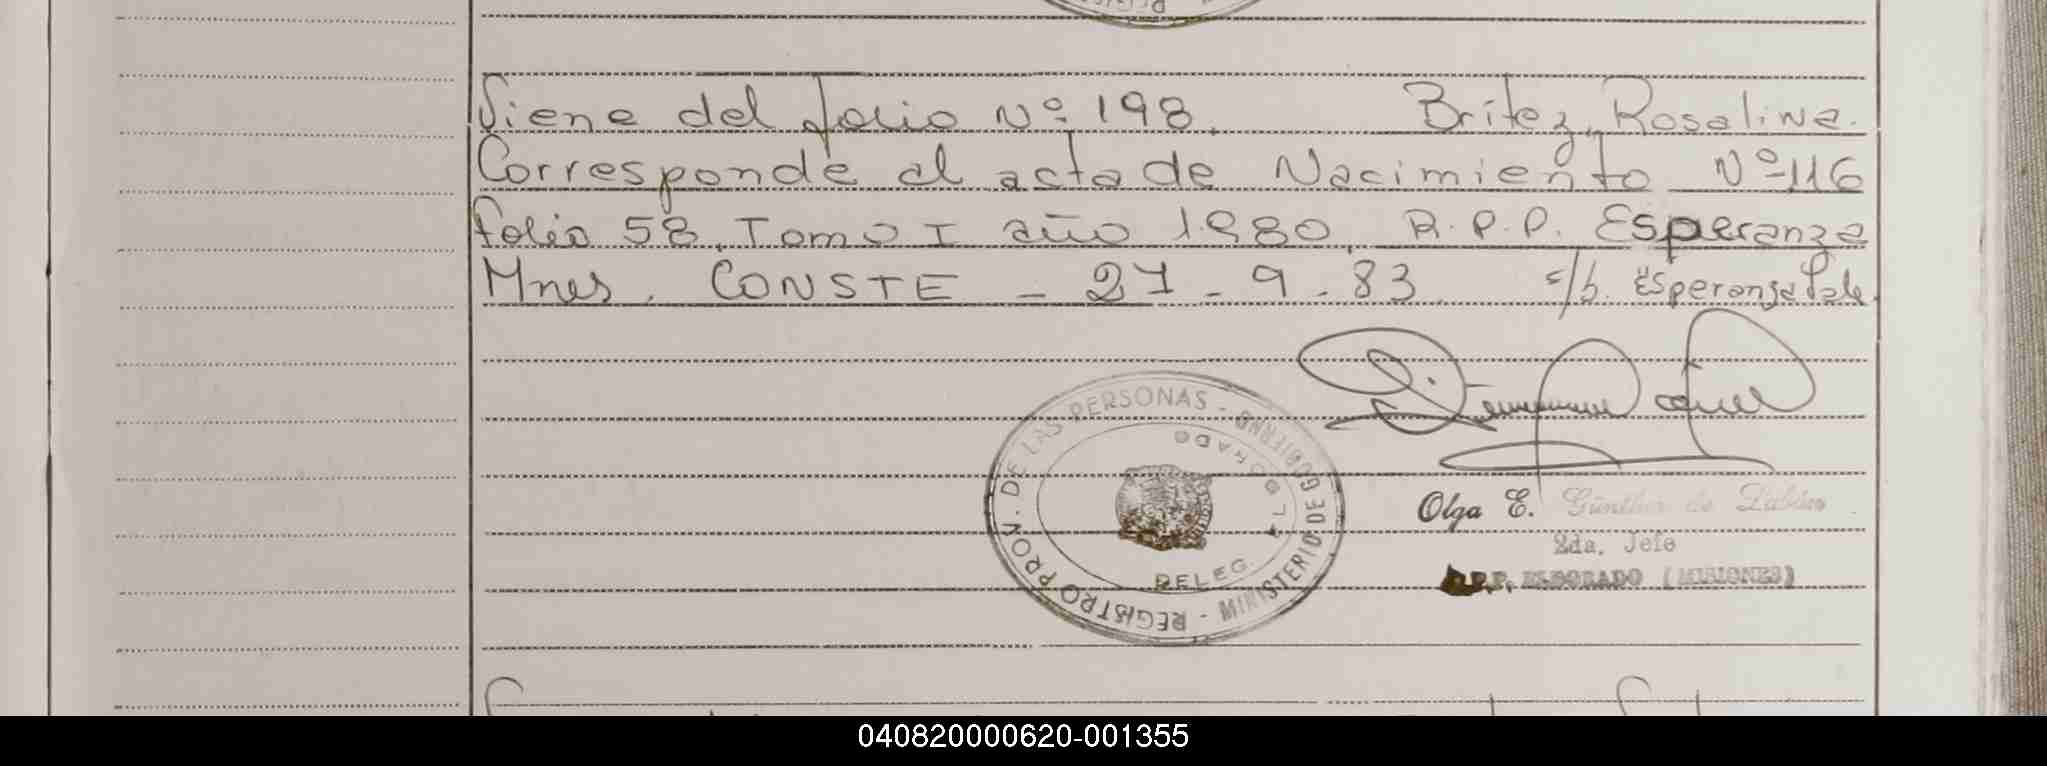 Viene del folio Nº 198. Britez, Rosalina.
Corresponde al acta de Nacimiento Nº 116
folio 58, Tomo I año 1980, R.P.P. Esperanza
Mnes. CONSTE - 27-9-83 c/b. Esperanza Vale.
REGISTRO PROV. DE LAS PERSONAS - MINISTERIO DE GOBIERNO
DELEG. ELDORADO
Olga E. Günther de
2da. Jefe
R.P.P. ELDORADO (MISIONES)
040820000620-001355